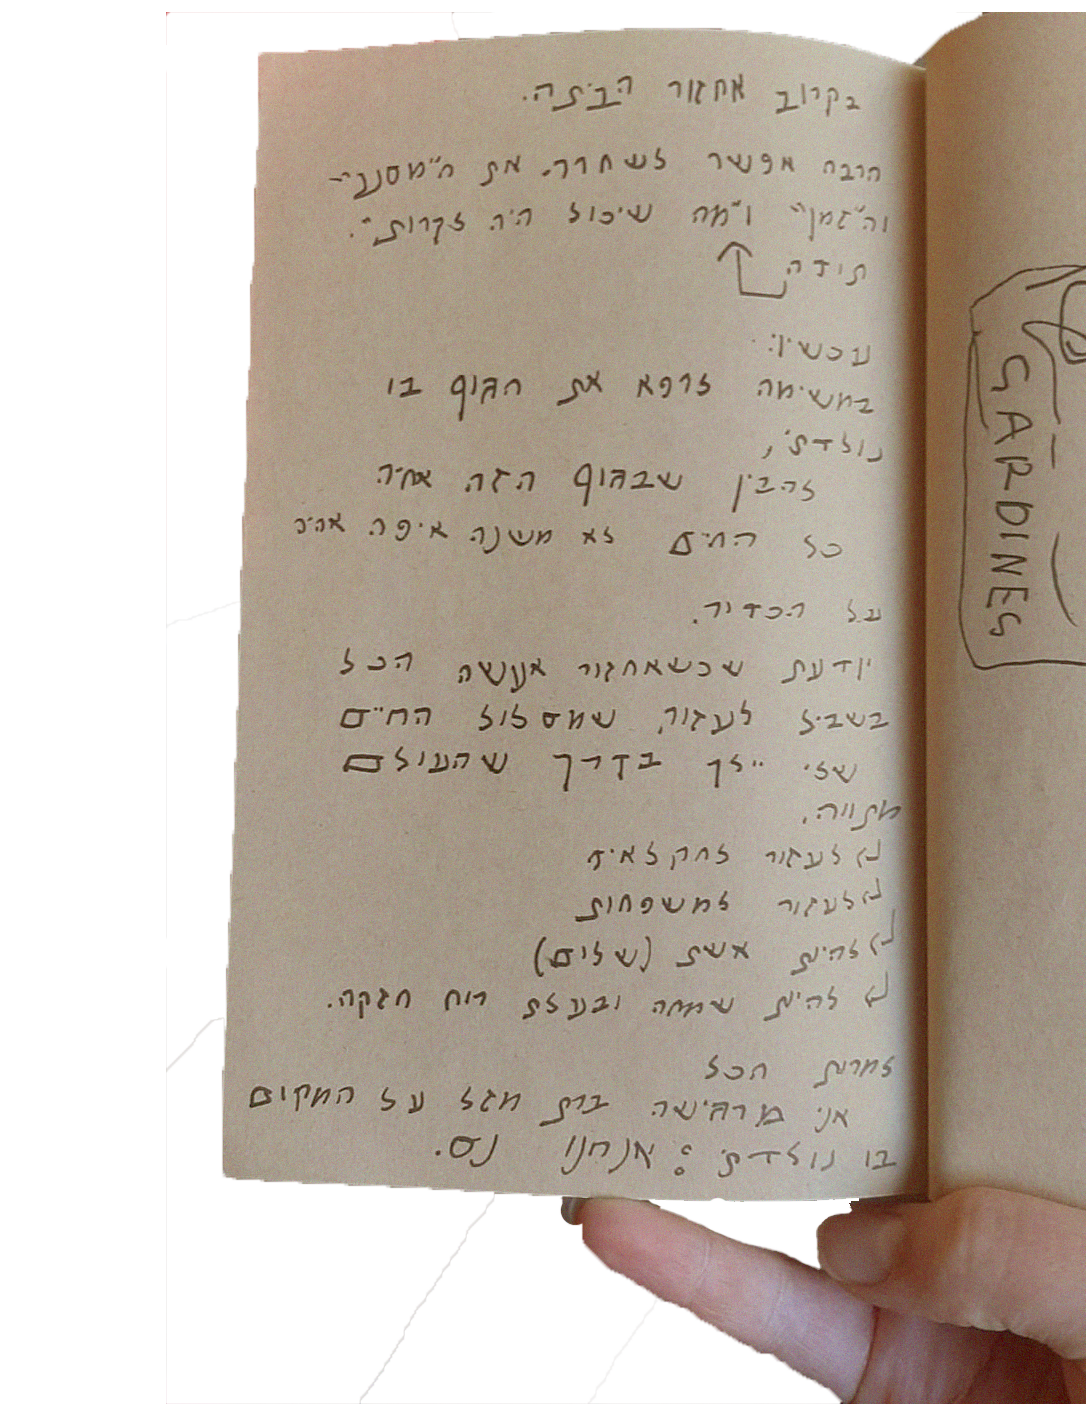 בקרוב אחזור הביתה.
הרבה אפשר לשחרר. את ה"מסנני"
וה"זמן" ו"מה שיכול היה לקרות".
תודה
עכשיו:
במשימה לרפא את הגוף בו
נולדתי,
להבין שבגוף הזה אחיה
כל החיים לא משנה איפה אהיה
על הכדור.
יודעת שכשאחזור אעשה הכל
בשביל לעזור, שמסלול החיים
שלי ילך בדרך שהעולם
מתווה.
לעזור לחקלאים
לעזור למשפחות
להיות אשת (שלום)
להיות שמחה ובעלת רוח חזקה.
למרות הכל
אני מרגישה ברת מזל על המקום
בו נולדתי; אנחנו נס.
SARDINES